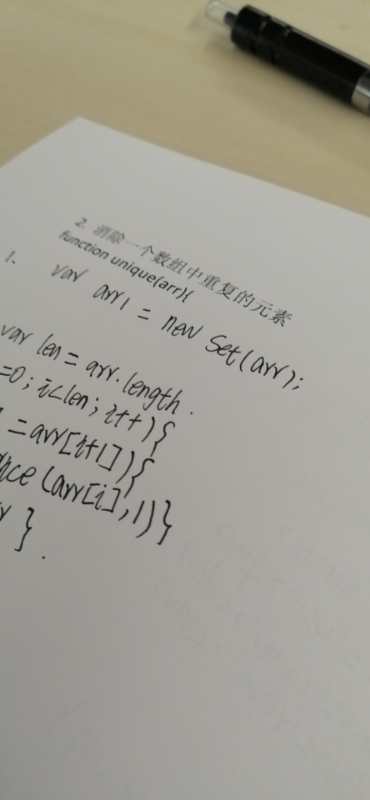 2. 消除一个数组中重复的元素
function unique(arr){
1. var arr1 = new Set(arr);
var len = arr.length.
=0; i<len; i++){
=arr[i+1]){
(arr[i],1)}
}.